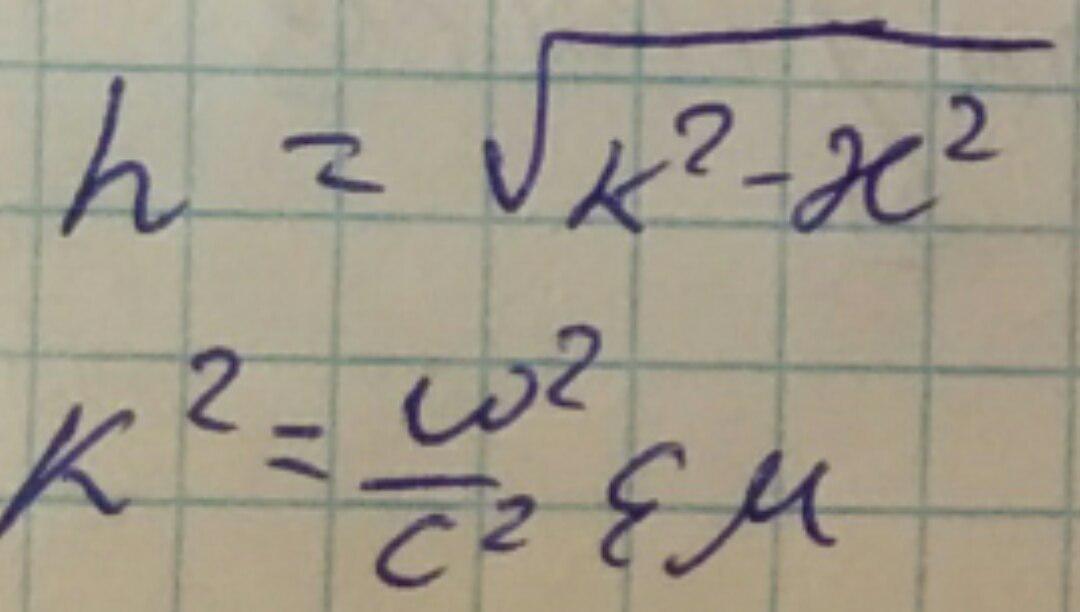 h = √(k² - ϰ²)
k² = ω²/c² εμ